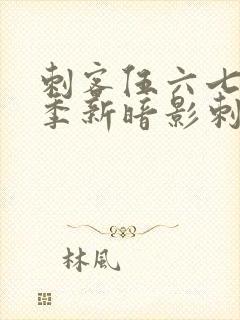 刺客伍六七
季新暗影刺
林風